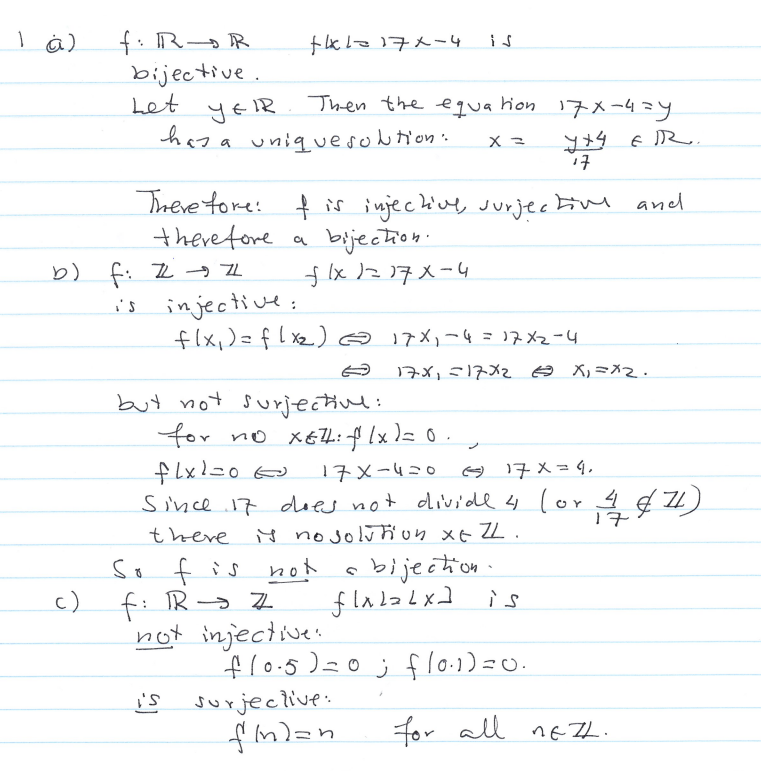 1 a) f: ℝ → ℝ f(x) = 17x-4 is
bijective.
Let y ∈ ℝ. Then the equation 17x-4 = y
has a unique solution: x = (y+4)/17 ∈ ℝ.
Therefore: f is injective, surjective and
therefore a bijection.
b) f: ℤ → ℤ f(x) = 17x-4
is injective:
f(x₁) = f(x₂) ⇔ 17x₁-4 = 17x₂-4
⇔ 17x₁ = 17x₂ ⇔ x₁ = x₂.
but not surjective:
for no x∈ℤ: f(x) = 0.
f(x) = 0 ⇔ 17x-4 = 0 ⇔ 17x = 4.
Since 17 does not divide 4 (or 4/17 ∉ ℤ)
there is no solution x ∈ ℤ.
So f is not a bijection.
c) f: ℝ → ℤ f(x) = ⌊x⌋ is
not injective:
f(0.5) = 0 ; f(0.1) = 0.
is surjective:
f(n) = n for all n ∈ ℤ.